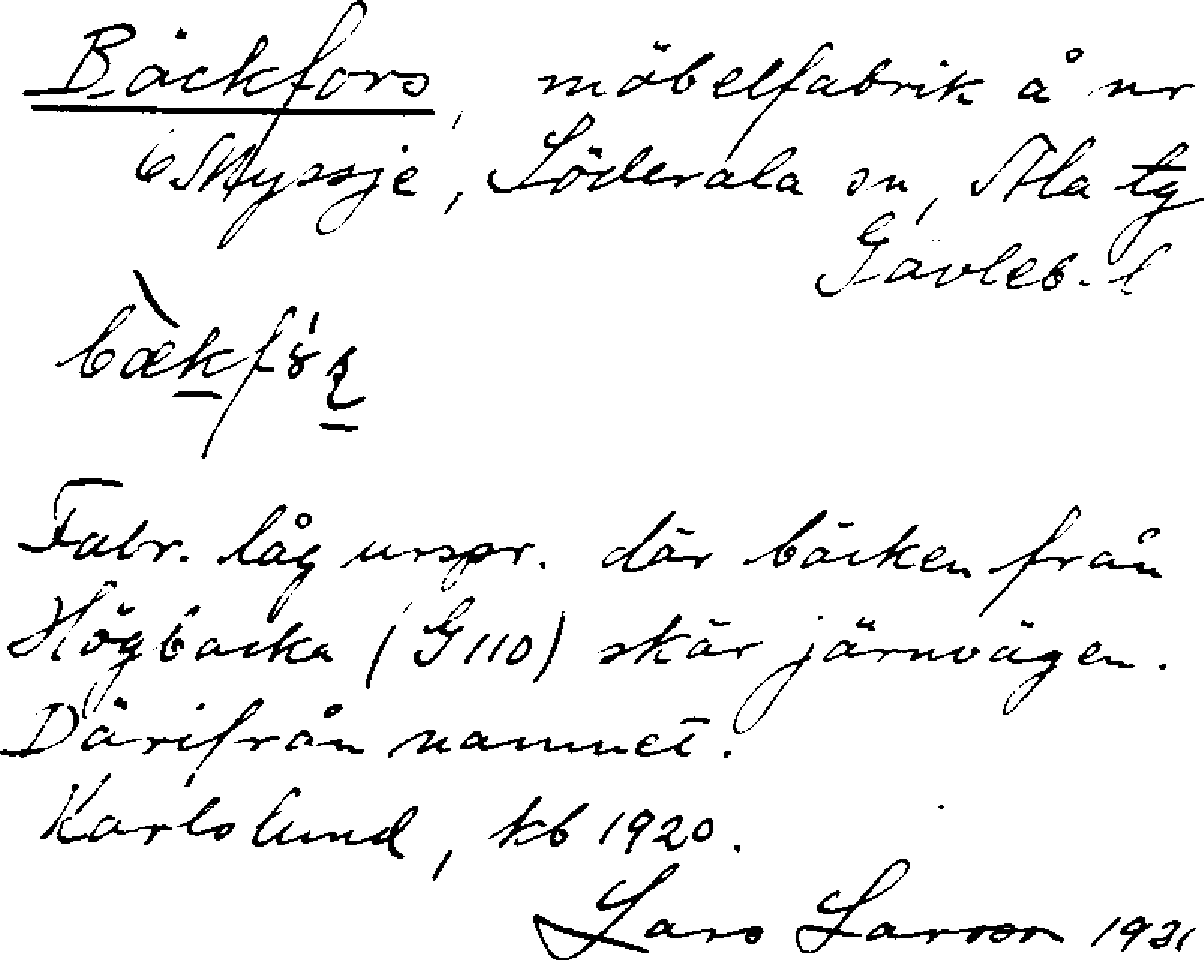 Bäckfors, möbelfabrik å nr
6 Myssje, Söderala sn, Ala tg
Gävleb. l
Fabr. låg urspr. där bäcken från
Högbacka (G110) skär järnvägen.
Därifrån namnet.
Karlslund, kb 1920.
Lars Larsson 1931